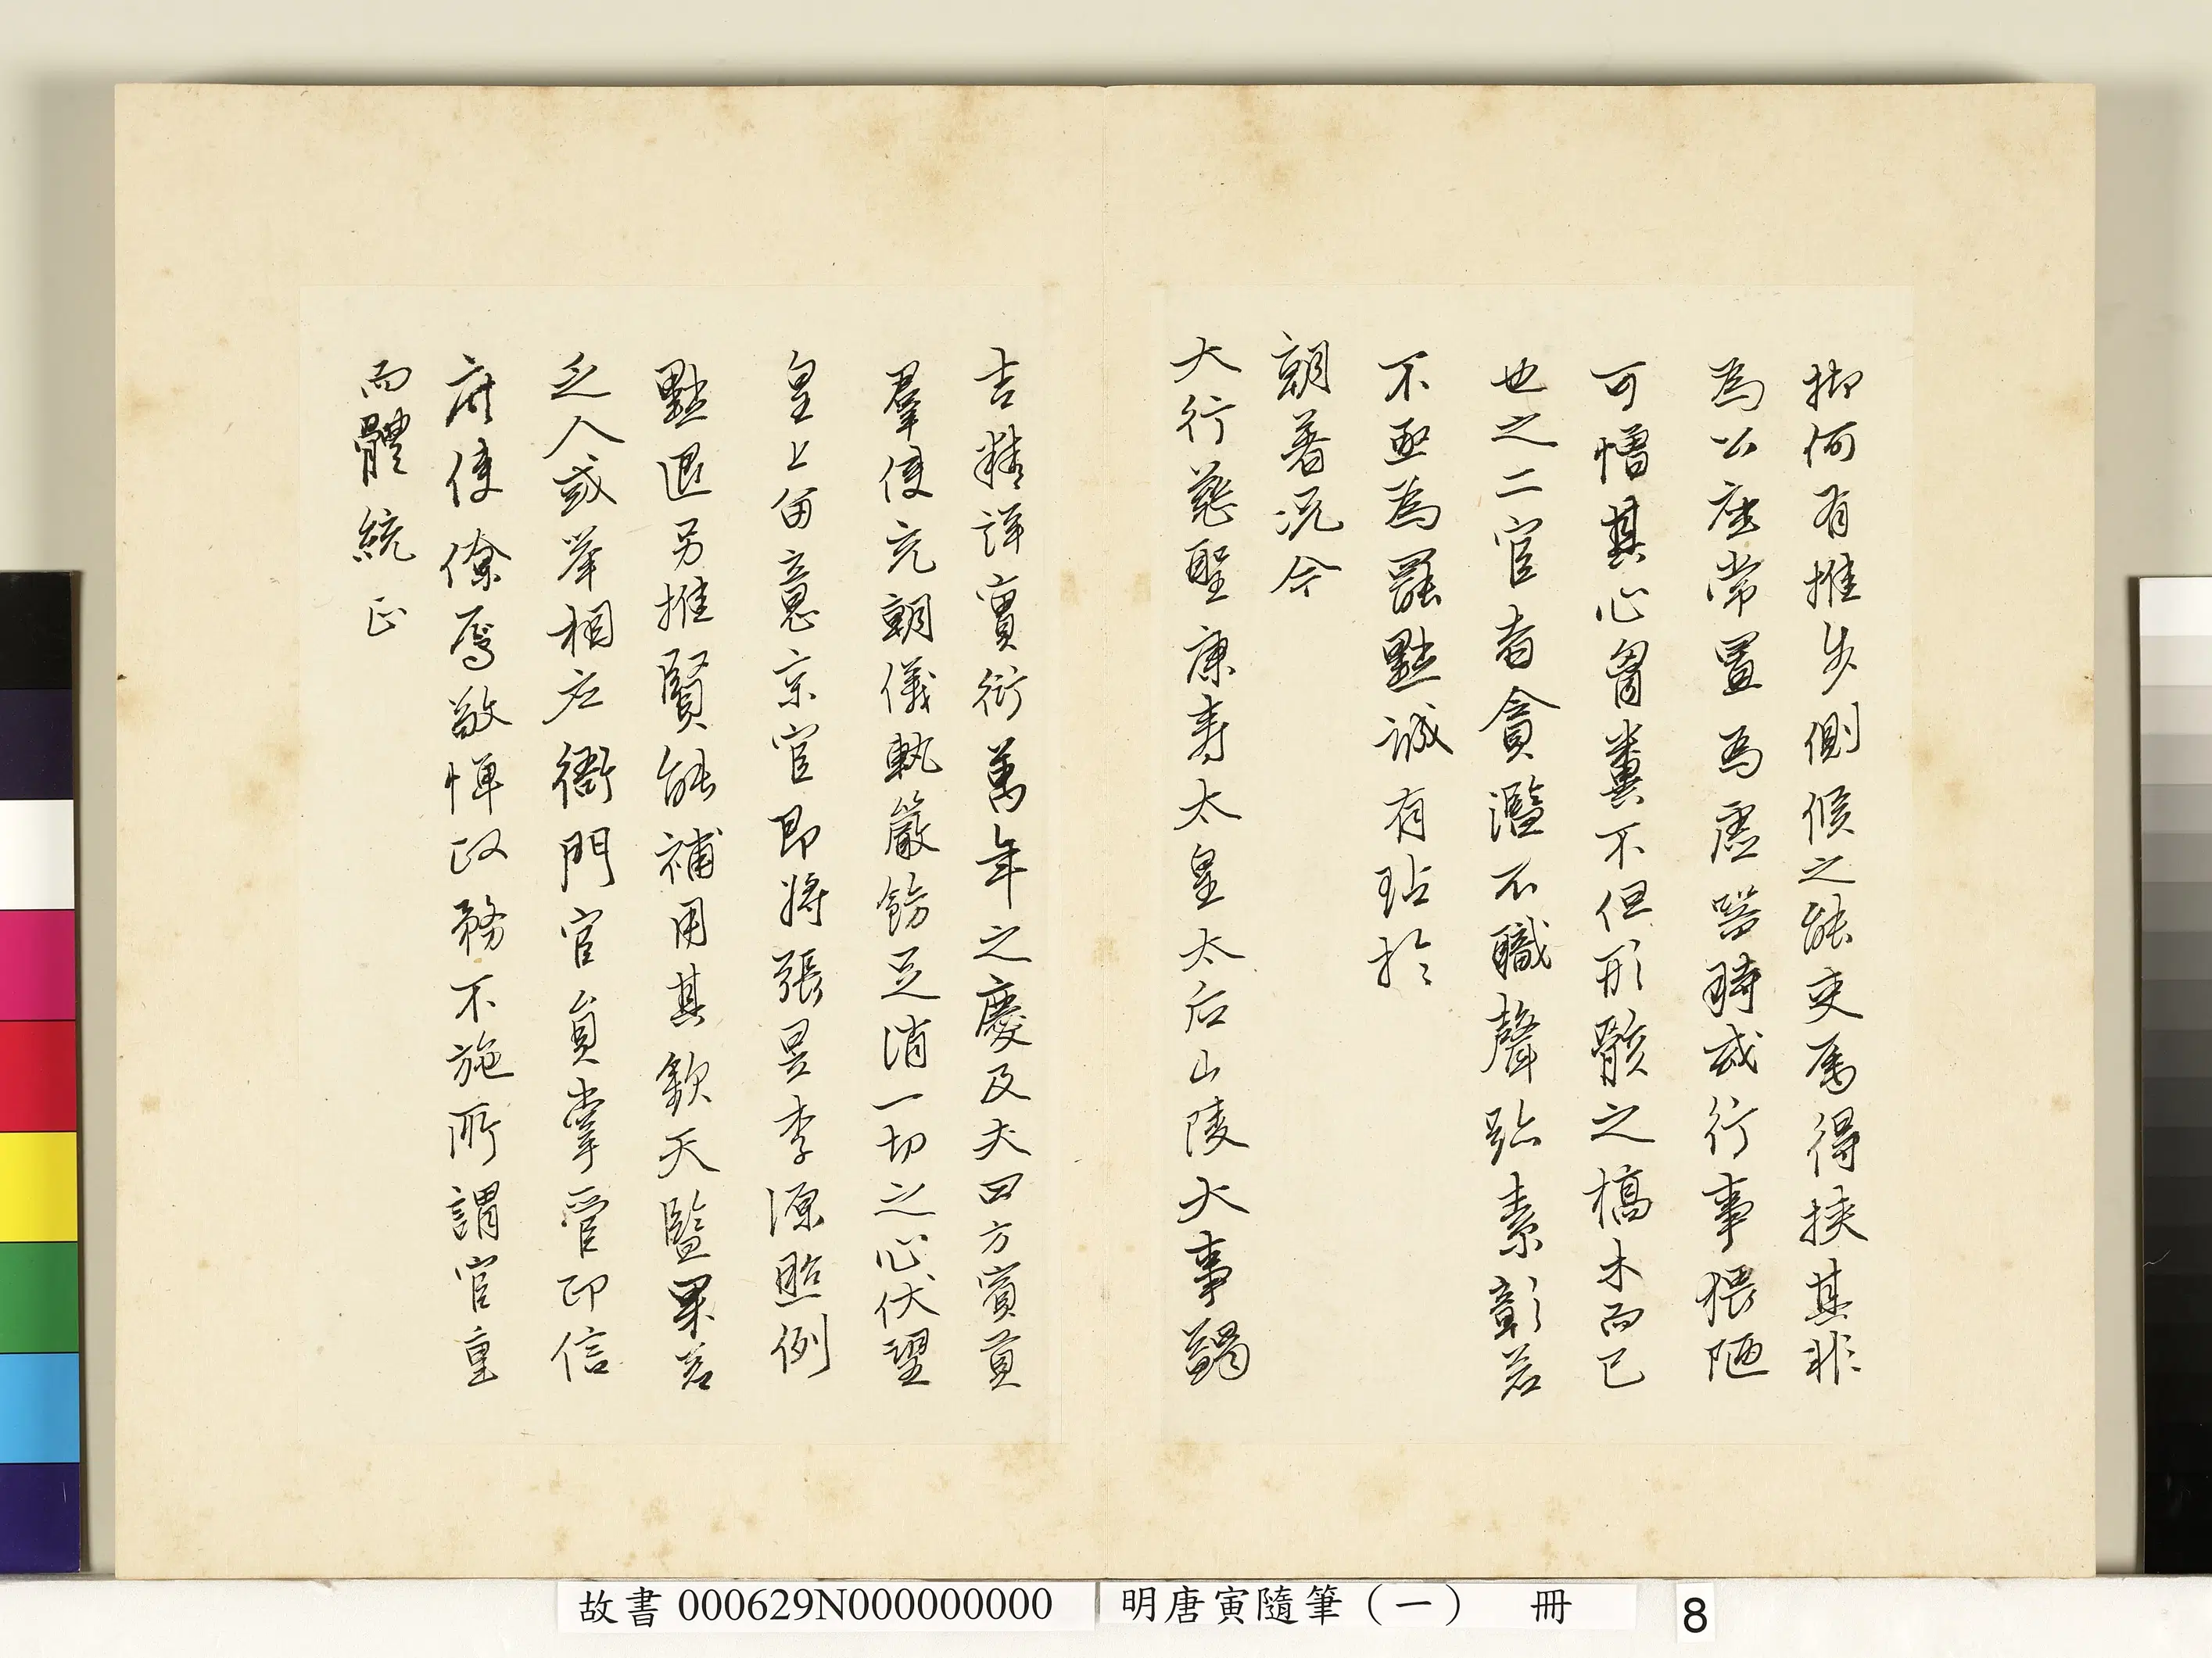 抑何有推步側候之能更為得挾其非
為公座常置為虛器時或行事猥陋
可憎其心胷糞不但形骸之槁木而已
也之二官者貪濫不職聲跡素彰若
不亟為罷黜誠有玷於
朝著況今
大行慈聖康壽太皇太后山陵大事蠲
吉精詳實衍萬年之慶及夫四方賓貢
羣使充朝儀執嚴飭足消一切之心伏望
皇上留意京官即將張昱李源照例
黜退另推賢能補用其欽天監果若
乏人或举相应衙門官員掌管印信
府使僚属敬惮政務不施所謂官重
而體統正
故書 000629N000000000
明唐寅隨筆（一） 冊
8